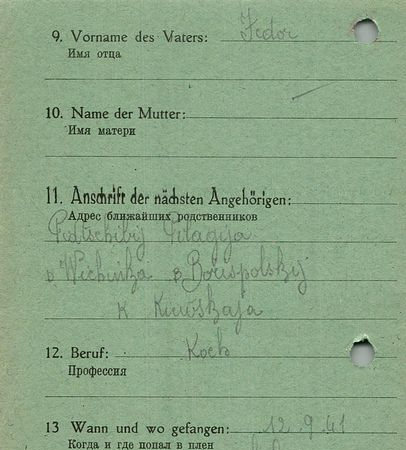 9. Vorname des Vaters: Fedor
Имя отца
10. Name der Mutter:
Имя матери
11. Anschrift der nächsten Angehörigen:
Адрес ближайших родственников
Pelagija
Boruspolskij
K Kiewskaja
12. Beruf: Koch
Профессия
13 Wann und wo gefangen: 12.9.41
Когда и где попал в плен